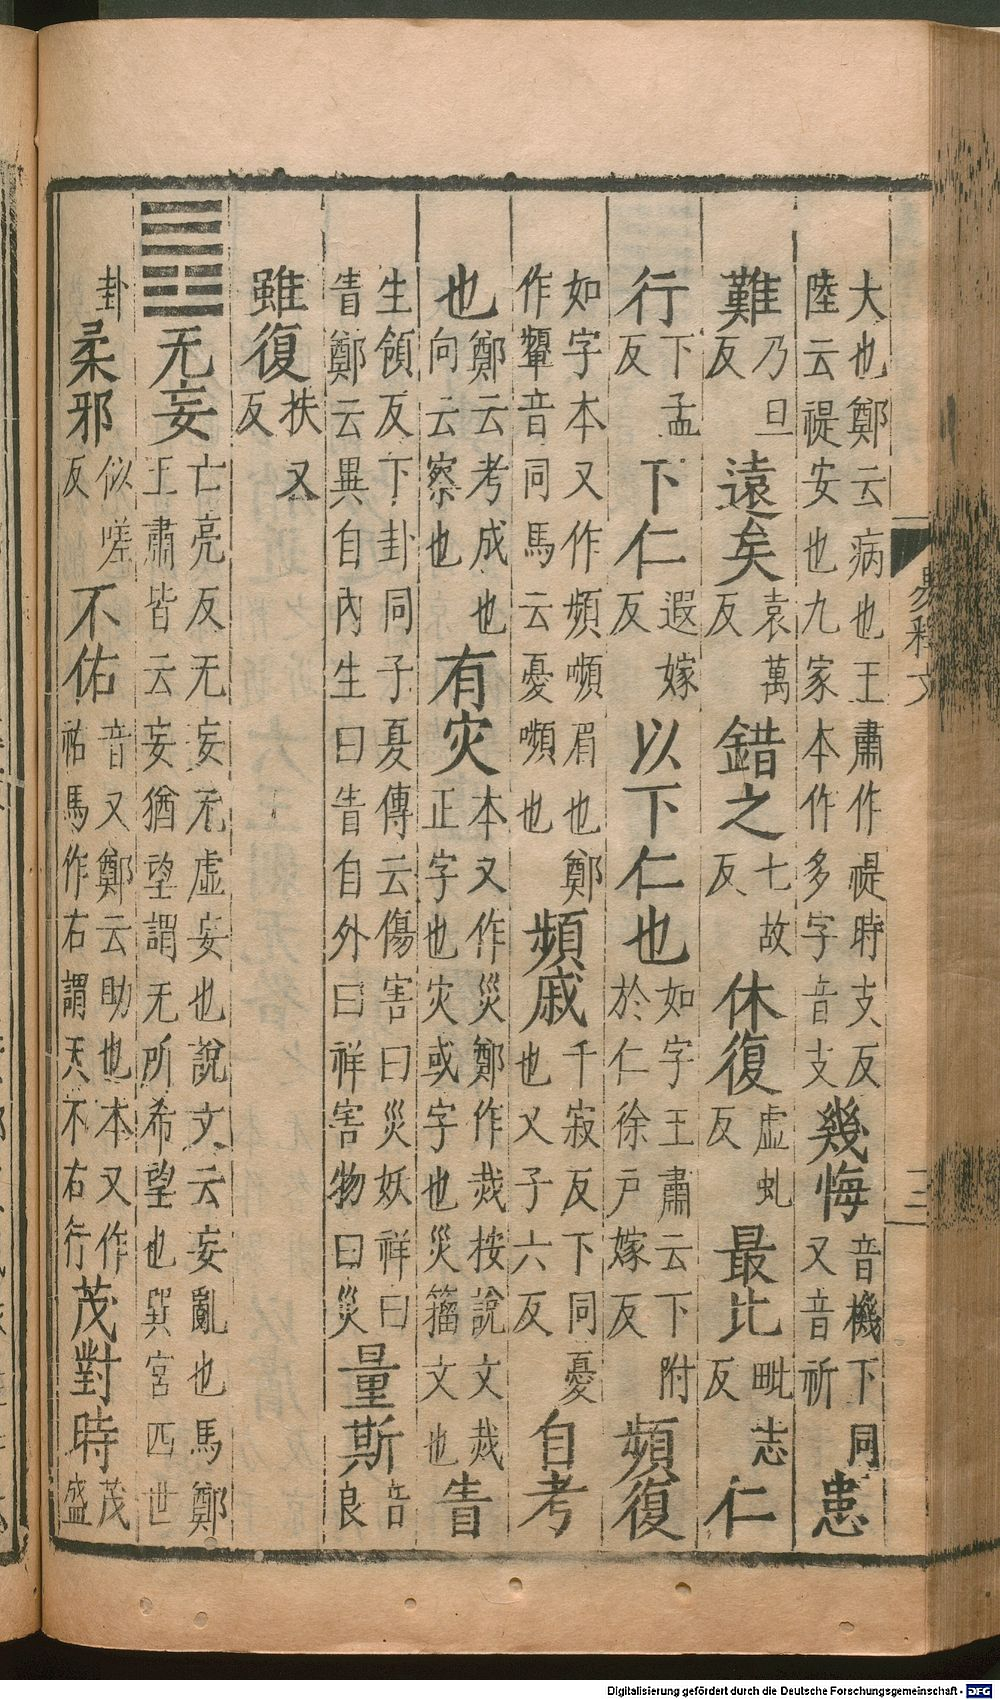 易釋文
三
大也鄭云病也王肅作禔時支反陸云禔安也九家本作多字音支幾悔音機下同又音祈患
難乃旦反遠矣袁萬反錯之七故反休復虛虬反最比毗志反仁
行下孟反下仁遐嫁反以下仁也如字王肅云下附於仁徐戶嫁反頻復
如字本又作頻嚬眉也鄭作顰音同馬云憂嚬也頻戚千寂反下同憂也又子六反自考
也鄭云考成也向云察也有灾本又作災鄭作烖按說文烖正字也灾或字也災籀文也眚
生領反下卦同子夏傳云傷害曰災妖祥曰眚鄭云異自內生曰眚自外曰祥害物曰災量斯音良
雖復扶又反
无妄亡亮反无妄无虛妄也說文云妄亂也馬鄭王肅皆云妄猶望謂无所希望也巽宮四世
卦柔邪似嗟反不佑音又鄭云助也本又作祐馬作右謂天不右行茂對時茂盛
Digitalisierung gefördert durch die Deutsche Forschungsgemeinschaft - DFG